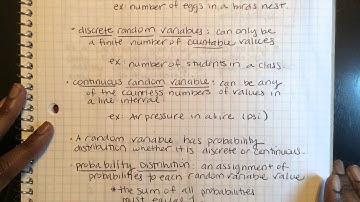 ex: number of eggs in a birds nest.
• discrete random variables: can only be
a finite number of countable values
ex: number of students in a class.
• continuous random variable: can be any
of the countless numbers of values in
a line interval.
ex: Air pressure in a tire (psi)
• A random variable has probability
distribution whether it is discrete or continuous.
• probability distribution: an assignment of
probabilities to each random variable value
*the sum of all probabilities
must equal 1